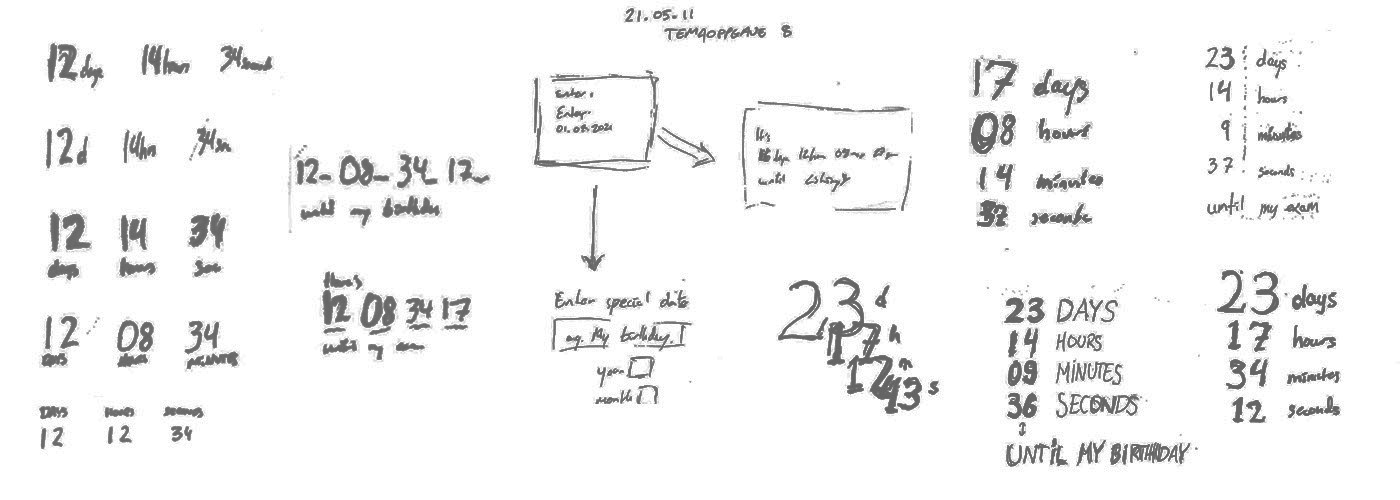 21.05.11
TEMAOPPGAVE 8
12 days 14 hours 34 seconds
12 d 14 hn 34 sn
12 14 34
days hours sec
12 08 34
DAYS HOURS MINUTES
DAYS HOURS seconds
12 12 34
12 08 34 17
until my birthday
Hours
12 08 34 17
until my exam
Enter
01.08.2021
It's
until
Enter special date
eg. My birthday.
year
month
23 d
17 h
12 m
43 s
17 days
08 hours
14 minutes
37 seconds
23 days
14 hours
9 minutes
37 seconds
until my exam
23 DAYS
14 HOURS
09 MINUTES
36 SECONDS
UNTIL MY BIRTHDAY
23 days
17 hours
34 minutes
12 seconds